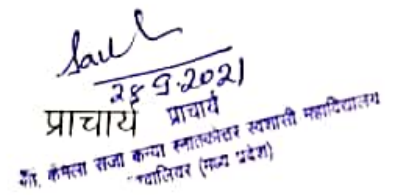 28.9.2021
प्राचार्य प्राचार्य
शा. कमला राजा कन्या स्नातकोत्तर स्वशासी महाविद्यालय
ग्वालियर (मध्य प्रदेश)